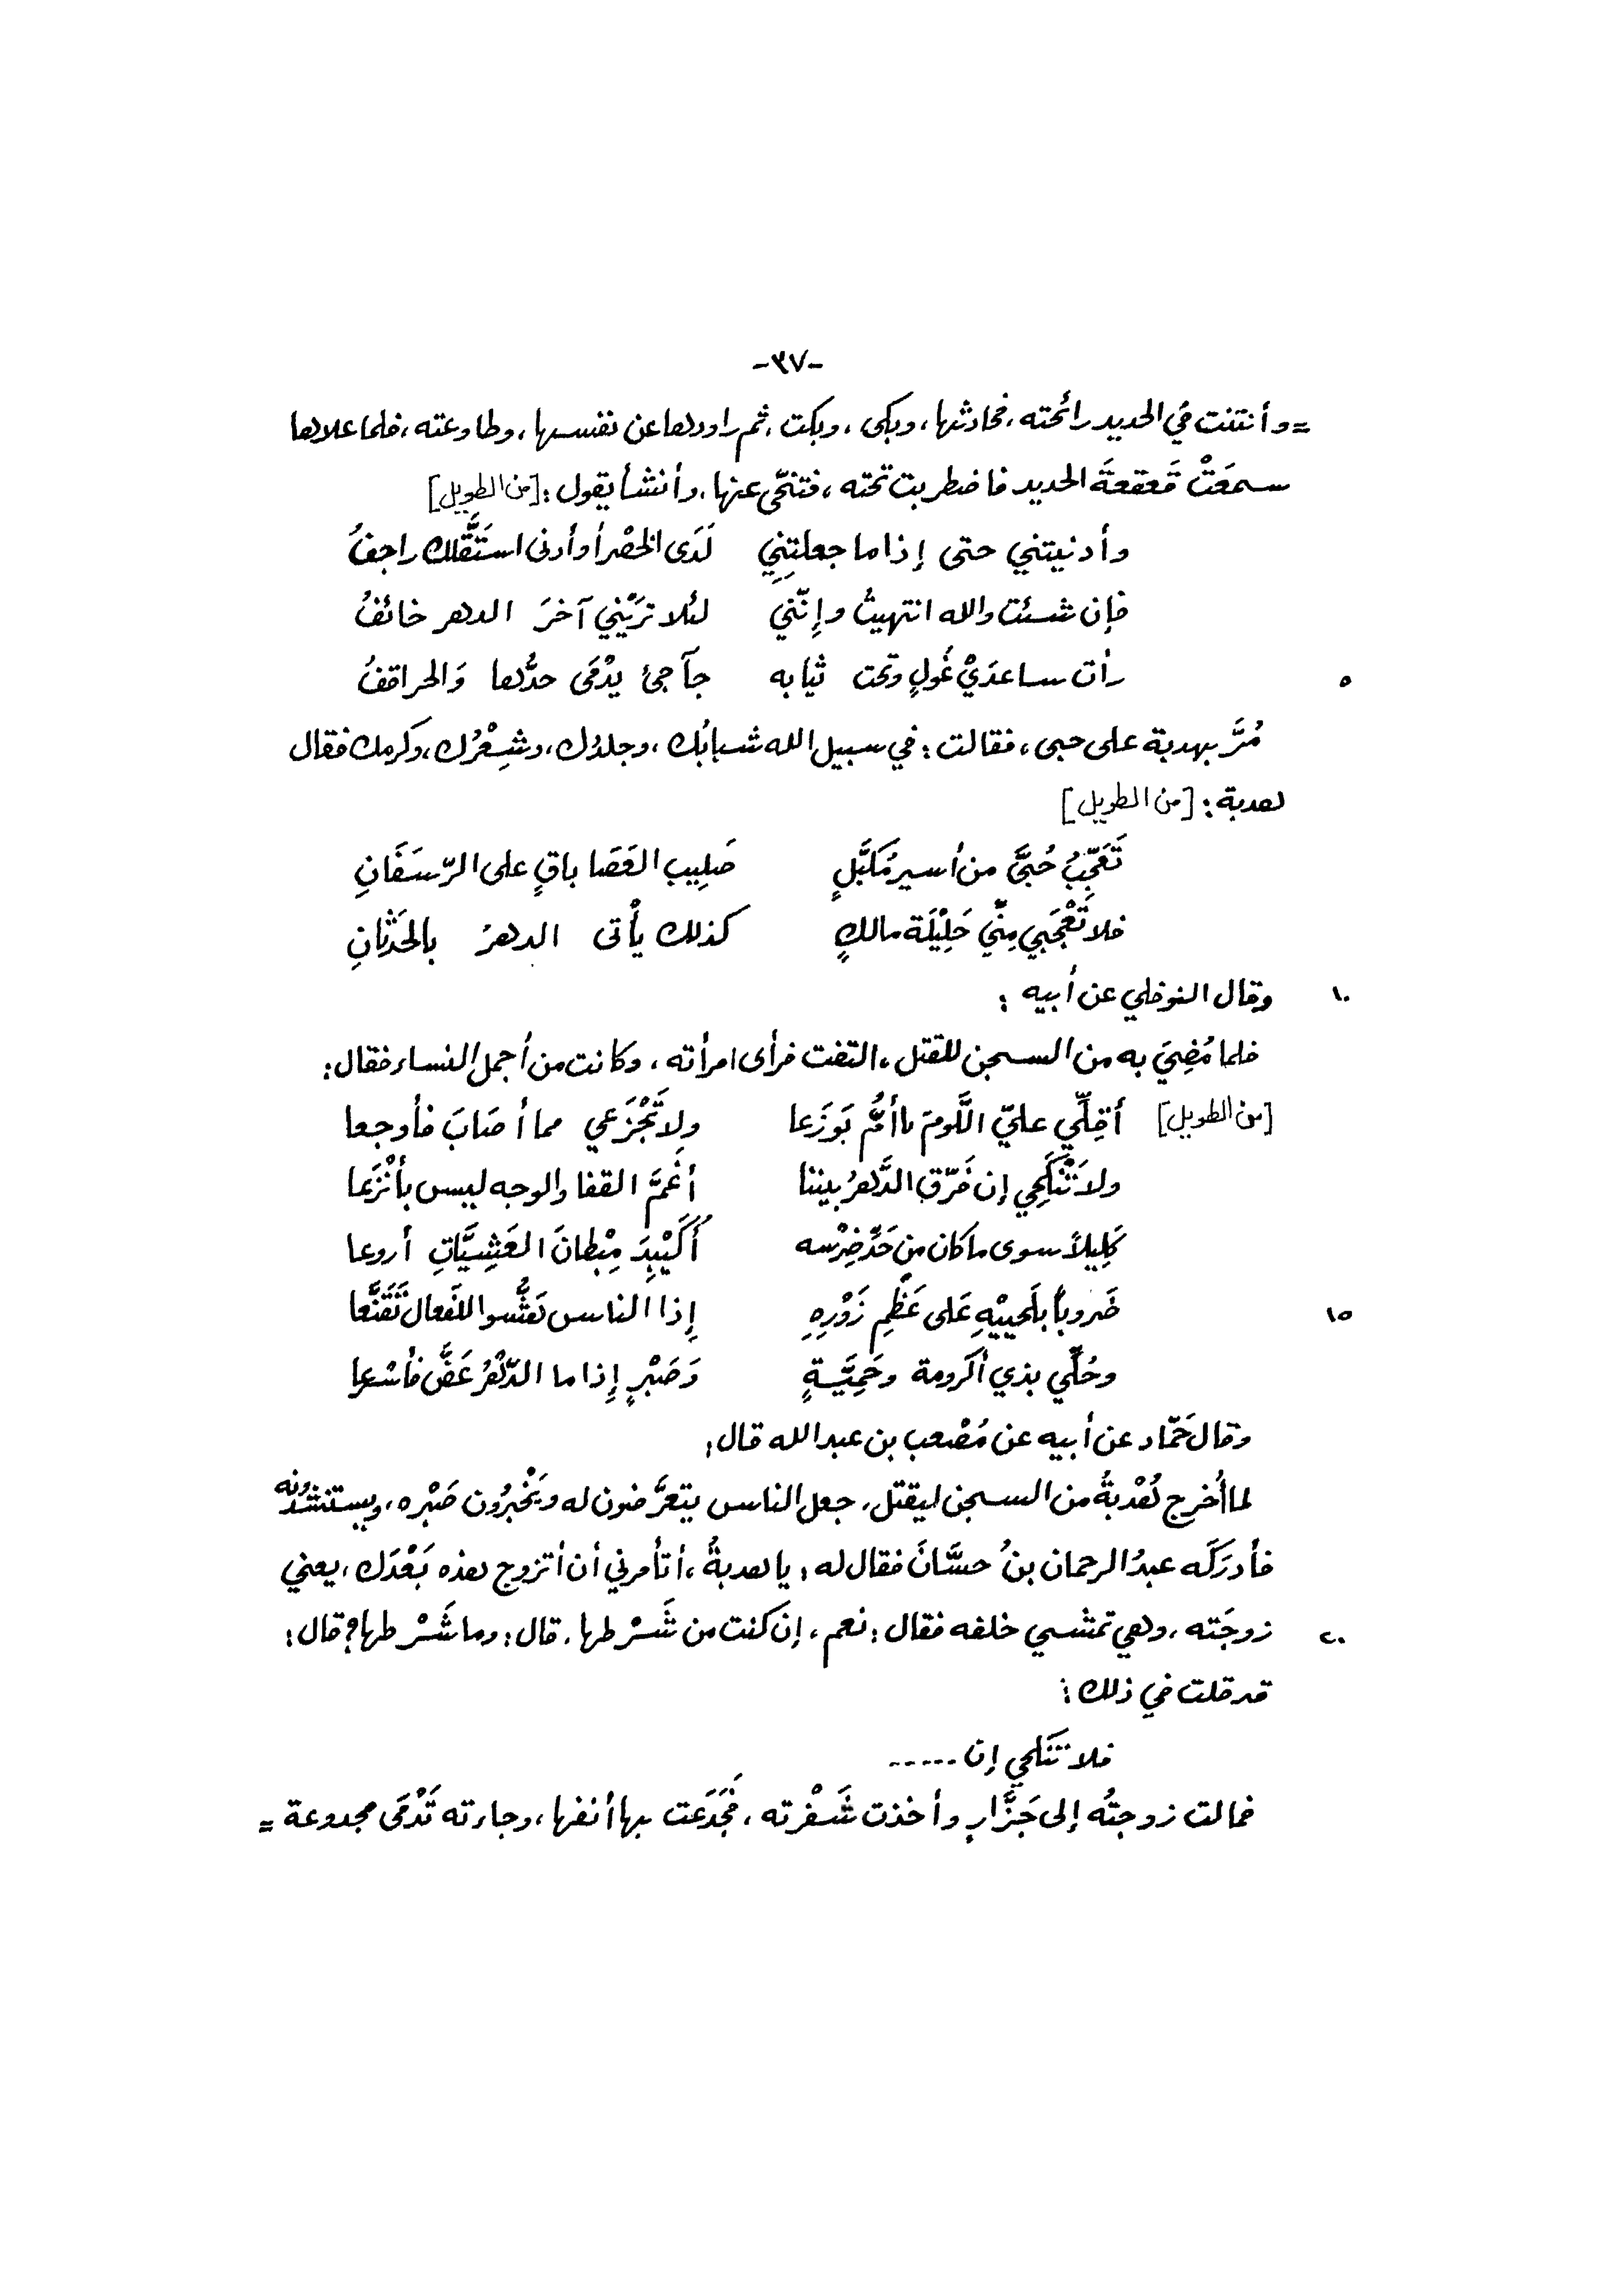 -٣٧-
= وأنتنت في الحديد رائحته، فحادثها، وبكى، وبكت، ثم راودها عن نفسها، وطاوعته، فلما علاها
سمعَتْ قَعقعةَ الحديد فاضطربت تحته، فتنحّى عنها، وأنشأ يقول: [من الطويل]
وأدنيتني حتى إذا ما جعلتِنِي لَدَى الخَصْر أو أدنى استَقَلّك راجفُ
فإن شئت والله انتهيتُ وإنّني لئلا ترَيْني آخرَ الدهر خائفُ
رأت ساعدَيْ غُولٍ وتحت ثيابه جآجئ يدْمَى حدُّها وَالحراقفُ
٥
مُرَّ بهدبة على حبى، فقالت: في سبيل الله شبابُك، وجلدُك، وشِعْرُك، وكرمك فقال
هدبة: [من الطويل]
تَعَجّبُ حُبَّى من أسير مُكبَّلٍ صَلِيب العَصَا باقٍ على الرّسَفَانِ
فلا تَعْجَبي مِنّي حَلِيْلَة مالكٍ كذلك يأْتى الدهرُ بالحَدَثانِ
وقال النوفلي عن أبيه :
١٠
فلما مُضِيَ به من السجن للقتل، التفت فرأى امرأته، وكانت من أجمل النساء فقال:
[من الطويل] أقِلِّي عليّ اللَّومَ ياأمُّ بَوزَعا ولا تَجْزَعي مما أصَابَ فأوجعا
ولا تَنْكَحِي إن فَرّق الدَّهرُ بيننا أغَمَّ القفا والوجه ليس بأنْزَعا
كَلِيلاً سوى ما كان من حَدِّ ضِرْسه أُكَيْبِدَ مِبْطانَ العَشِيَّاتِ أروعا
ضَروباً بلَحييْهِ عَلى عَظْمِ زَوْرِهِ إذا الناس هَشُّوا للفَعال تَقَنَّعا
١٥
وحُلِّي بذي أكرومة وحَمِيَّةٍ وَصَبْرٍ إذا ما الدّهْرُ عَضَّ فأسْرعا
وقال حَمّاد عن أبيه عن مُصْعب بن عبدالله قال:
لما أُخرج هُدْبةُ من السجن ليقتل، جعل الناس يتعرَّضون له ويَخْبرُون صَبْره، ويستنشدونه
فأدرَكَه عبدُ الرحمان بنُ حسَّانَ فقال له: يا هدبةُ، أتأمرني أن أتزوج هذه بَعْدَك، يعني
زوجَته، وهي تمشي خلفه فقال: نعم، إن كنت من شَرْطها. قال: وما شَرْطها؟ قال:
٢٠
قد قلت في ذلك:
فلا تنكحي إن -----
فمالت زوجتُه إلى جَزَّارٍ وأخذت شَفْرته، فَجَدَعت بها أنفها، وجاءته تَدْمَى مجدوعة =